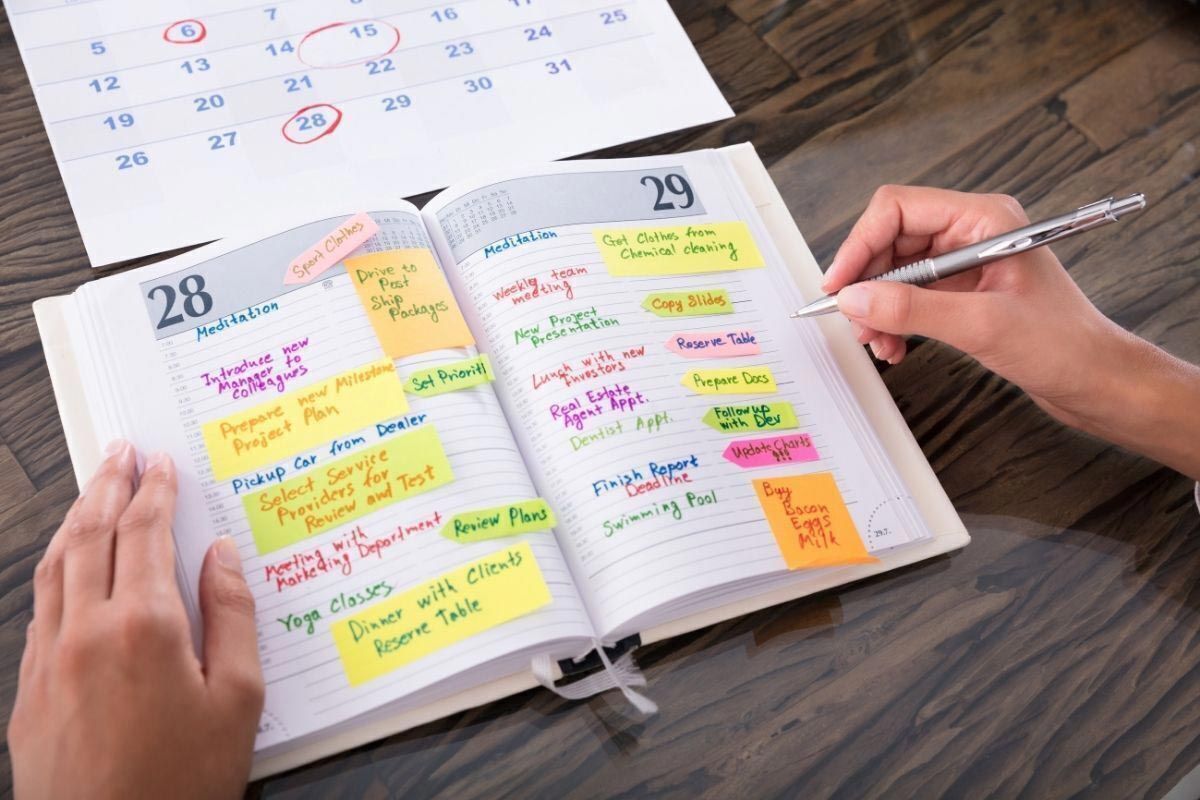 5 6 7 8
12 13 14 15 16 17
19 20 21 22 23 24 25
26 27 28 29 30 31
28
Sport Clothes
Meditation
Drive to
Post
Ship
Packages
Introduce new
Manager to
colleagues
Set Prioriti
Prepare new Milestone
Project
Plan
Pickup Car from Dealer
Select Service
Providers for
Review and Test
Review Plans
Meeting with
Marketing Department
Yoga Classes
Dinner with Clients
Reserve Table
29
Meditation
Get Clothes from
Chemical cleaning
Weekly team
meeting
Copy Slides
New Project
Presentation
Reserve Table
Lunch with new
Investors
Prepare Docs
Real Estate
Agent Appt.
Follow up
with Dev
Dentist Appt.
Update Charts
!!!
Finish Report
Deadline
Swimming Pool
Buy
Bacon
Eggs
Milk
29.7.